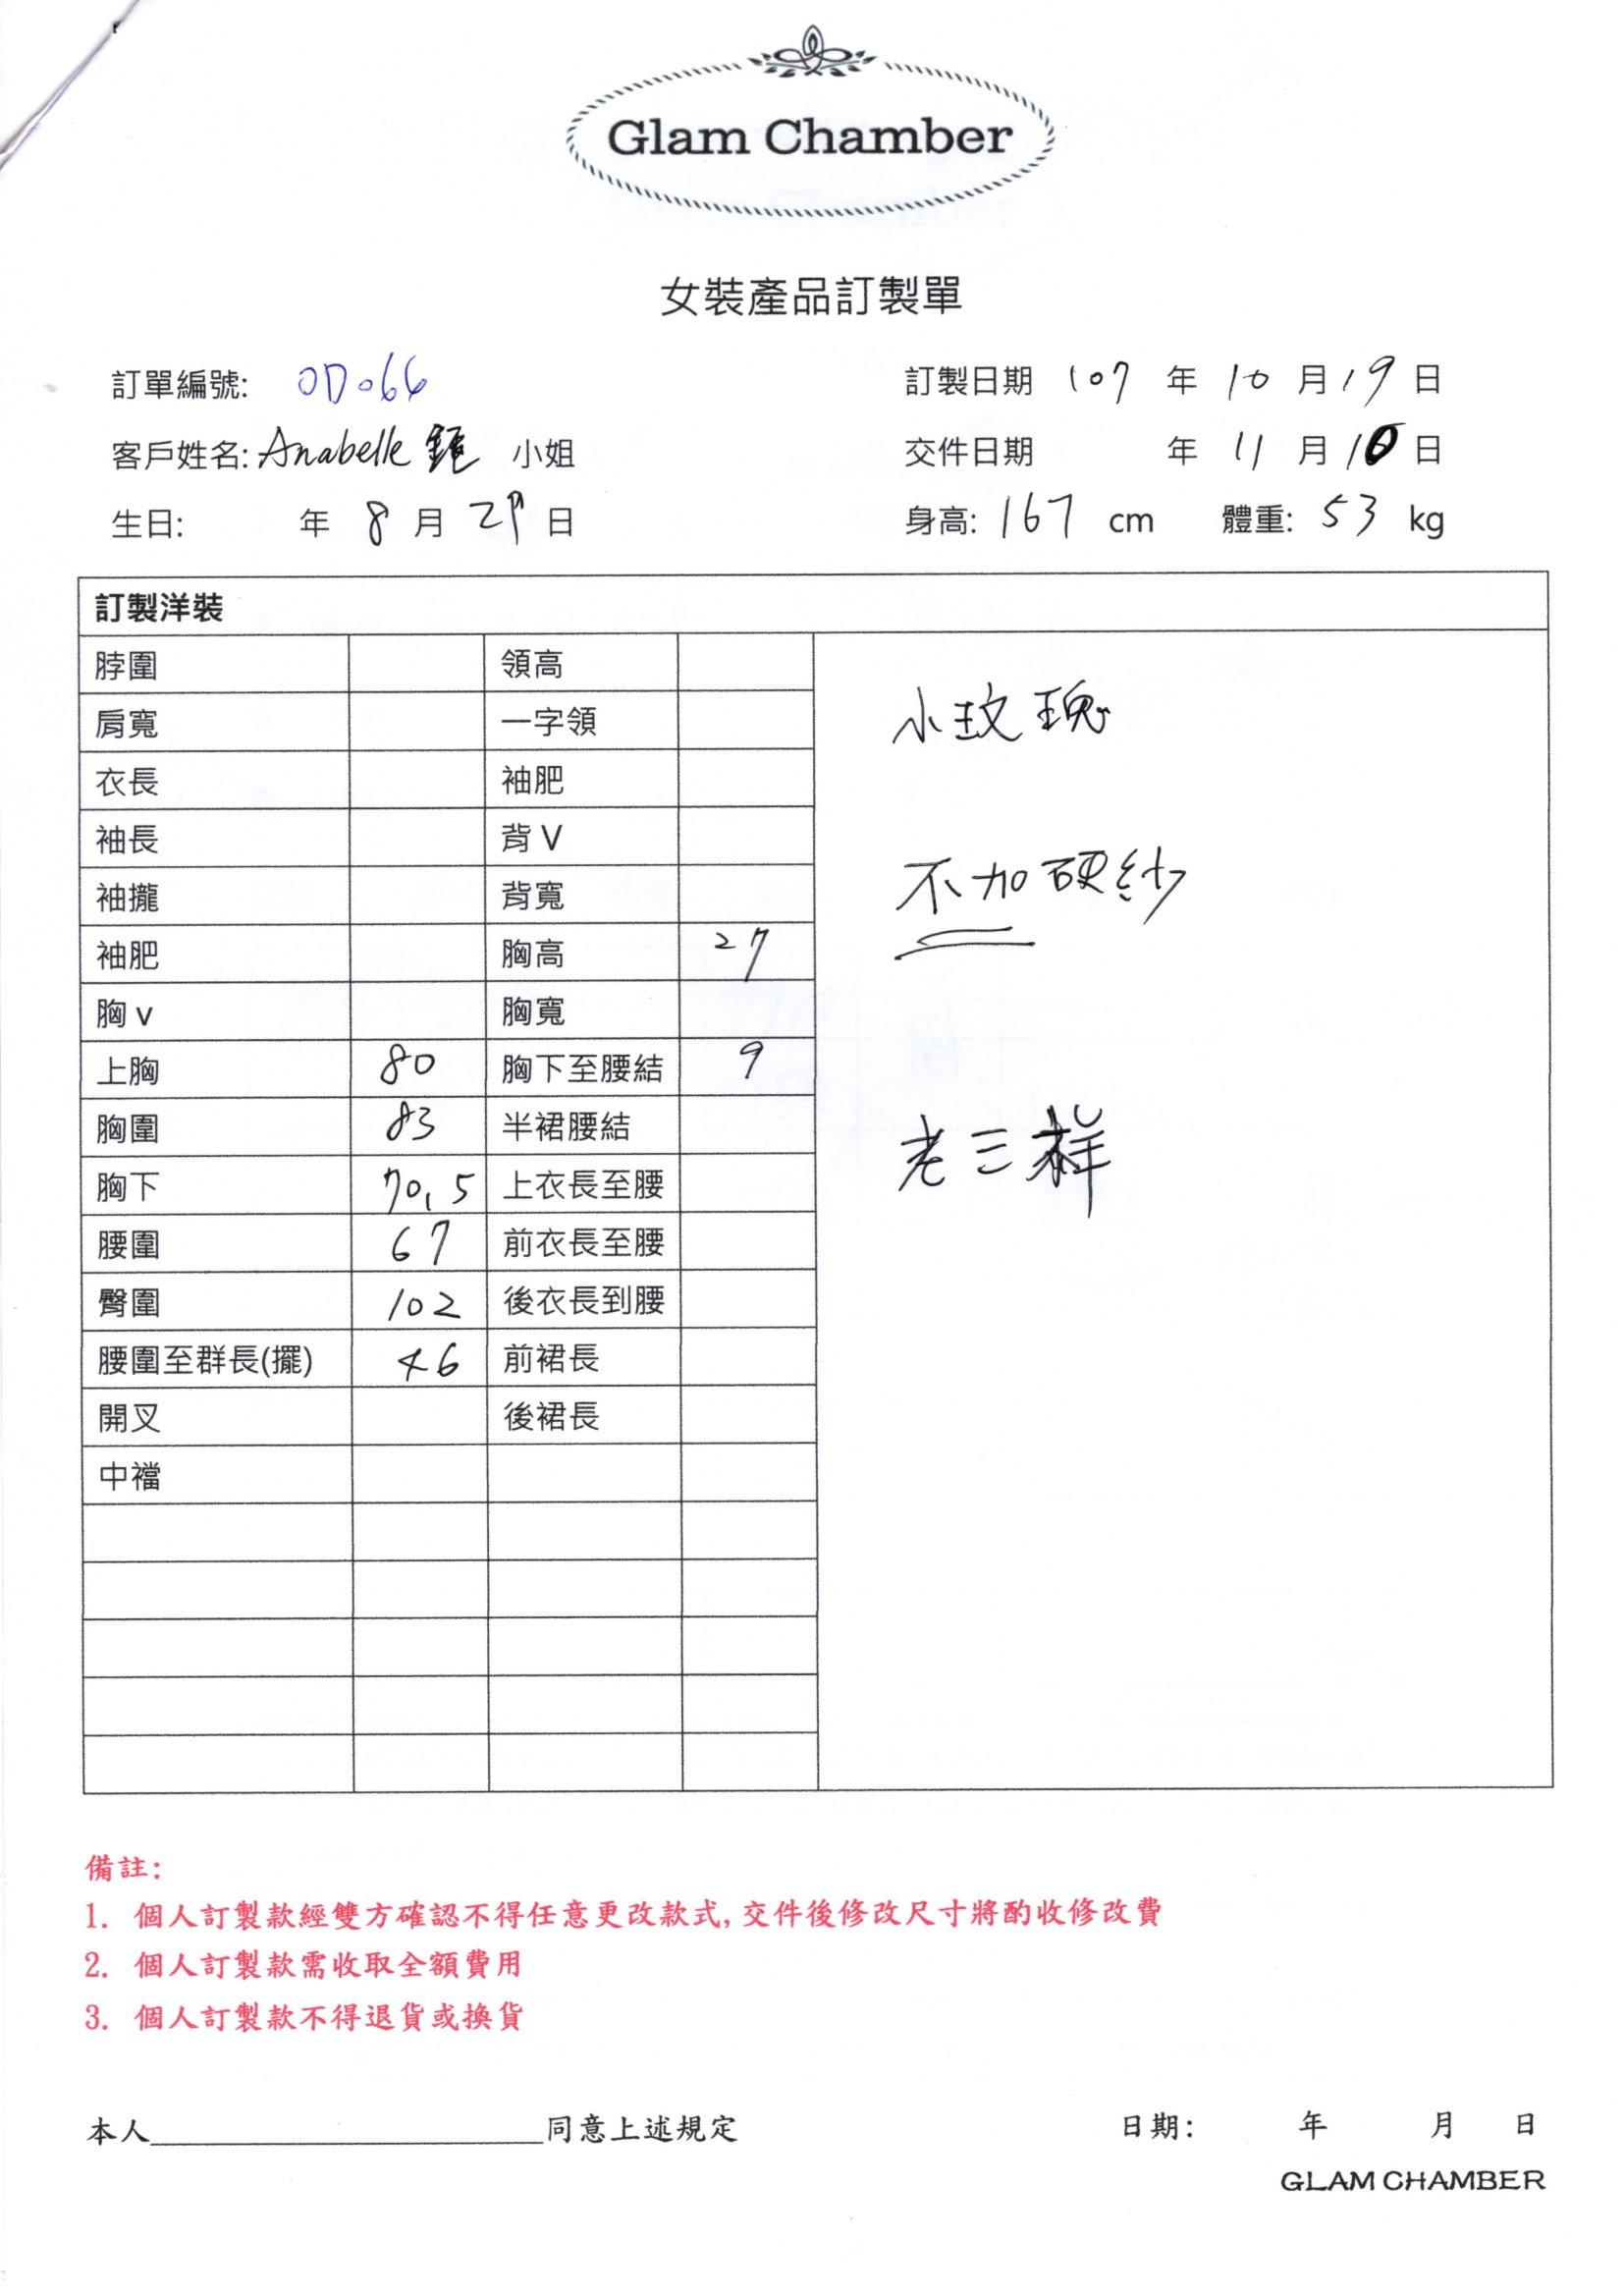 Glam Chamber
女裝產品訂製單
訂單編號: OD066 訂製日期 107 年 10 月 19 日
客戶姓名: Anabelle 小姐 交件日期 年 11 月 10 日
生日: 年 8 月 29 日 身高: 167 cm 體重: 53 kg
訂製洋裝
脖圍 領高
肩寬 一字領
小玫瑰
衣長 袖肥
袖長 背 V
袖攏 背寬
不加硬紗
袖肥 胸高 27
胸 v 胸寬
上胸 80 胸下至腰結 9
胸圍 83 半裙腰結
胸下 70.5 上衣長至腰
老三樣
腰圍 67 前衣長至腰
臀圍 102 後衣長到腰
腰圍至群長(擺) 46 前裙長
開叉 後裙長
中襠
備註:
1. 個人訂製款經雙方確認不得任意更改款式, 交件後修改尺寸將酌收修改費
2. 個人訂製款需收取全額費用
3. 個人訂製款不得退貨或換貨
本人 同意上述規定 日期: 年 月 日
GLAM CHAMBER